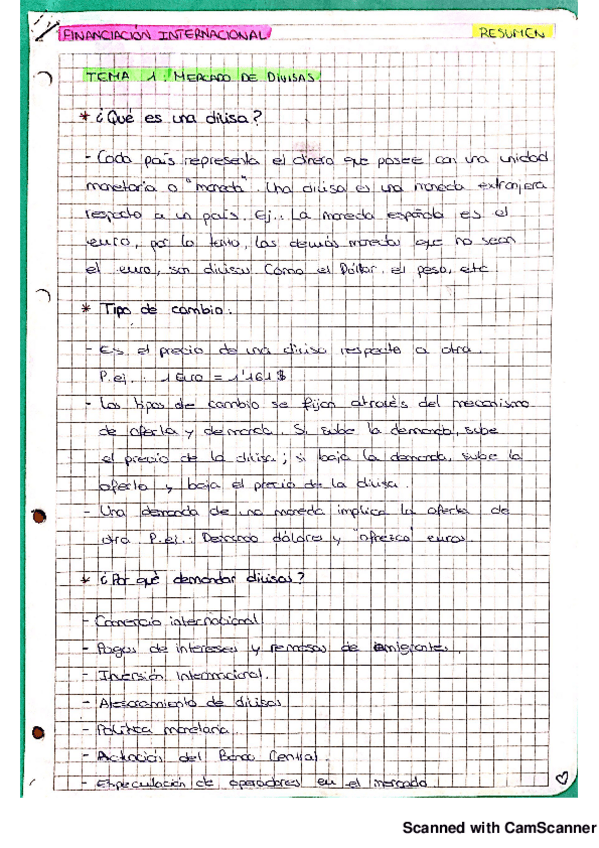 FINANCIACIÓN INTERNACIONAL
RESUMEN
TEMA 1: MERCADO DE DIVISAS.
* ¿Qué es una divisa?
- Cada país representa el dinero que posee con una unidad
monetaria o "moneda". Una divisa es una moneda extranjera
respecto a un país. Ej.: La moneda española es el
euro, por lo tanto, las demás monedas que no sean
el euro, son divisas. Como el Dólar, el peso, etc
* Tipo de cambio.
- Es el precio de una divisa respecto a otra.
P.ej.: 1 Euro = 1'161 $
- Los tipos de cambio se fijan através del mecanismo
de oferta y demanda. Si sube la demanda, sube
el precio de la divisa; si baja la demanda, sube la
oferta y baja el precio de la divisa.
- Una demanda de una moneda implica la oferta de
otra. P.ej.: Demando dólares y "ofrezco" euros.
* ¿Por qué demandar divisas?
- Comercio internacional
- Pagos de intereses y remesas de emigrantes.
- Inversión Internacional.
- Atesoramiento de divisas
- Política monetaria.
- Actuación del Banco Central.
- Especulación de operadores en el mercado
Scanned with CamScanner